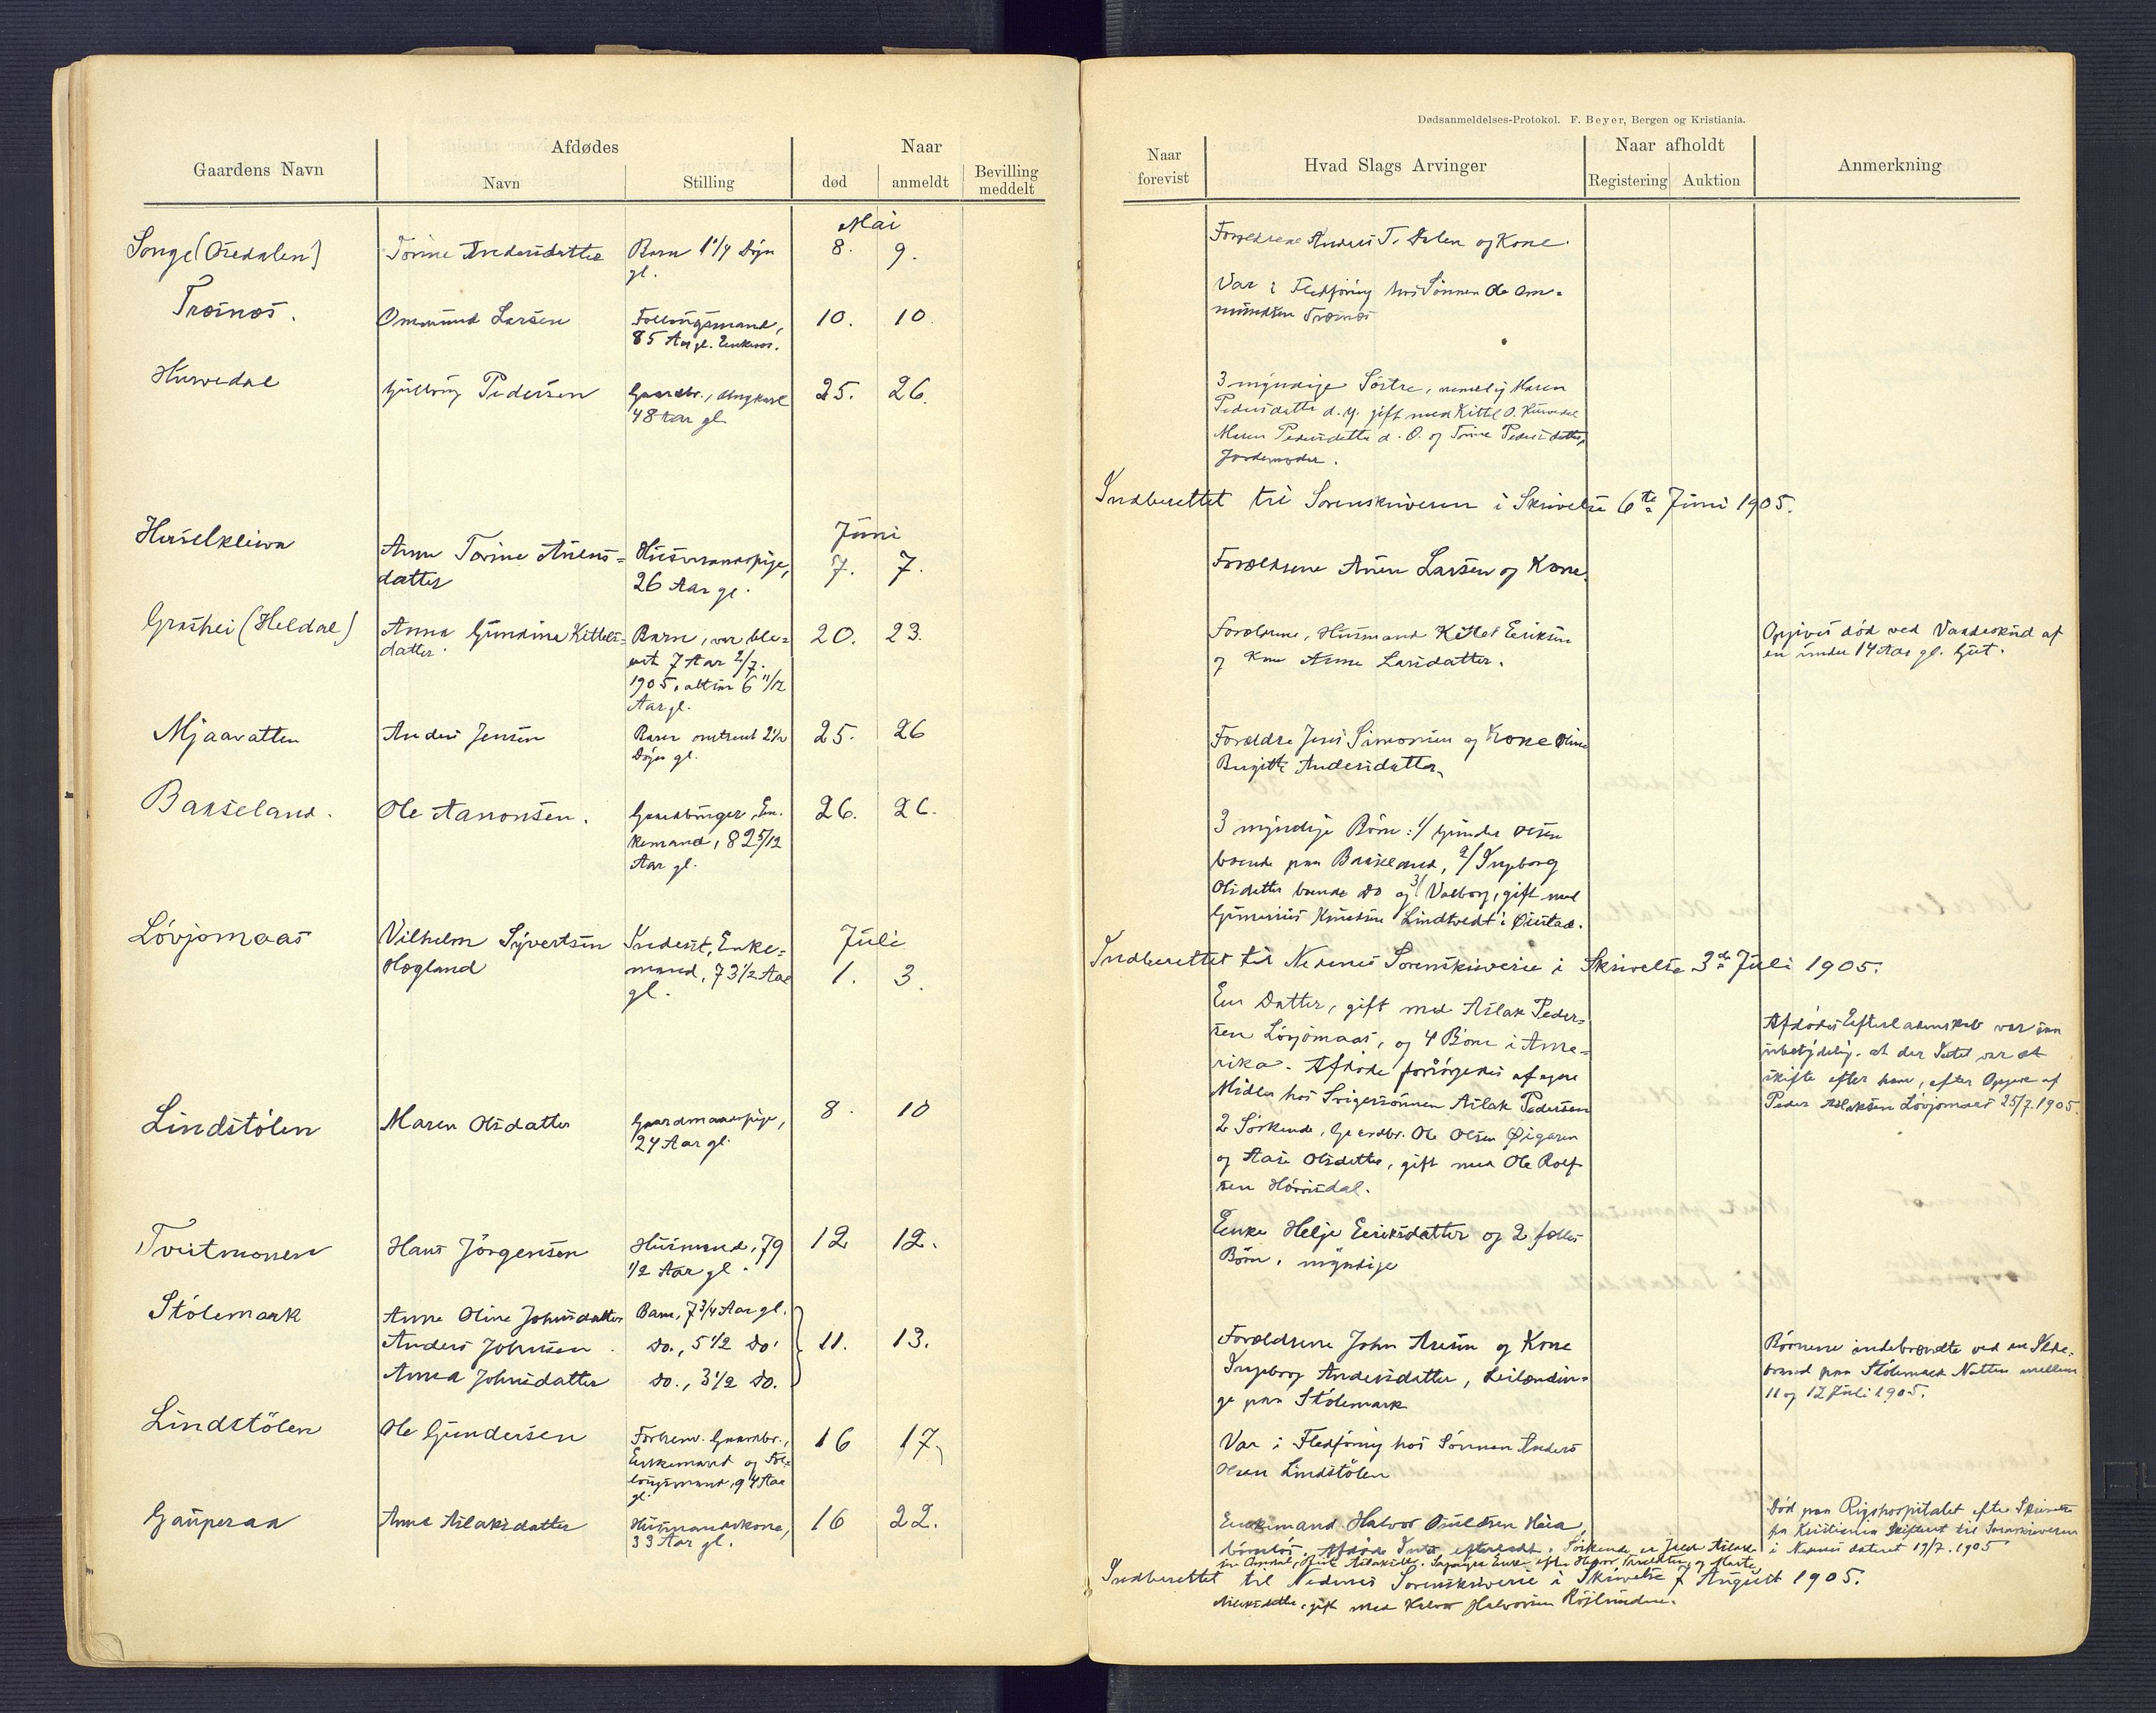 Dødsanmeldelses-Protokol. F. Beyer, Bergen og Kristiania.
Gaardens Navn
Afdødes
Navn
Stilling
Naar
død
anmeldt
Bevilling
meddelt
Naar
forevist
Hvad Slags Arvinger
Naar afholdt
Registering
Auktion
Anmerkning
Mai
Songe (Osedalen)
Torine Andersdatter
Barn 1 1/4 Døgn
gl.
8. 9.
Forældrene Anders T. Dalen og Kone.
Træinæs.
Ommund Larsen
Føderaadsmand,
85 Aar gl. Enkem.
10. 10.
Var i Fledføring hos Sønnen Ole Om=
mundsen Træinæs
Hurvedal
Gullbrig Pedersen
Gaardbr., Ungkarl
48 Aar gl.
25. 26.
3 myndige Søstre, nemlig Maren
Pedersdatter d. y. gift med Kittel O. Hurvedal
Maren Pedersdatter d. O. og Torine Pedersdatter,
Jordemoder.
Indberettet til Sorenskriveren i Skrivelse 6te Juni 1905.
Juni
Hasselkleiva
Anne Torine Asens=
datter
Husmandspige,
26 Aar gl.
7. 7.
Forældrene Asen Larsen og Kone.
Grashei (Heldal)
Anna Gundine Kittels=
datter.
Barn, var ble=
vet 7 Aar 2/7.
1905, altsaa 6 11/12
Aar gl.
20. 23.
Forældrene, Husmand Kittel Eriksen
og Kone Anne Larsdatter.
Opgives død ved Vaadeskud af
en under 14 Aar gl. Gut.
Mjaavatten
Anders Jensen
Barn omtrent 2 1/2
Døgn gl.
25. 26
Forældre Jens Simonsen og Kone Oline
Birgitte Andersdatter.
Bakseland.
Ole Aanonsen.
Gaardbruger, En=
kemand, 82 5/12
Aar gl.
26. 26.
3 myndige Børn: 1/ Gunder Olsen
boende paa Bakseland, 2/ Ingeborg
Olsdatter boende do og 3/ Valborg, gift med
Gunerius Knutsen Lindtvedt i Øiestad.
Indberettet til Nedenes Sorenskriverie i Skrivelse 3de Juli 1905.
Juli
Løvjomaas
Vilhelm Syvertsen
Høgland
Inderst, Enke=
mand, 73 1/2 Aar
gl.
1. 3.
En Datter, gift med Aslak Peder=
sen Løvjomaas, og 4 Børn i Ame=
rika. Afdøde forsørgedes af egne
Midler hos Svigersønnen Aslak Pedersen
Afdødes Efterladenskab var saa
ubetydelig at der Intet var at
skifte efter ham, efter Opgave af
Peder Aslaksen Løvjomaas 25/7. 1905.
Lindstølen
Maren Olsdatter
Gaardmandspige,
24 Aar gl.
8. 10
2 Søskende, Gaardbr. Ole Olsen Øigaren
og Aase Olsdatter, gift med Ole Rolf
sen Hørrisdal.
Tveitmonen
Hans Jörgensen
Husmand, 79
1/2 Aar gl.
12 12.
Enke Helje Eriksdatter og 2 fælles
Børn, myndige
Stólemark
Anne Oline Johnsdatter
Barn, 7 3/4 Aar gl.
Anders Johnsen
do., 5 1/2 do.
Anna Johnsdatter
do., 3 1/2 do.
11. 13.
Forældrene John Asen og Kone
Ingeborg Andersdatter, Leilændin=
ge paa Stólemark
Børnene indebrændte ved en Ilde=
brand paa Stólemark Natten mellem
11 og 12 Juli 1905.
Lindstölen
Ole Gundersen
Forhenv. Gaardbr.,
Enkemand og Fø=
94 Aar
gl.
16 17.
Var i Fledføring hos Sønnen Anders
Olsen Lindstölen
Gauperaa
Anne Aslaksdatter
Husmandskone,
33 Aar gl.
16 22.
Enkemand Halvor Heia,
barnløs. Afdøde Intet efterladt. Søskende er
og Marte
Aslaksdatter, gift med Halvor Halvorsen
Død paa Rigshospitalet efter Skrivelse
fra Kristiania Skifteret til Sorenskriveren
i Nedenes dateret 19/7. 1905
Indberettet til Nedenes Sorenskriverie i Skrivelse 7 August 1905.